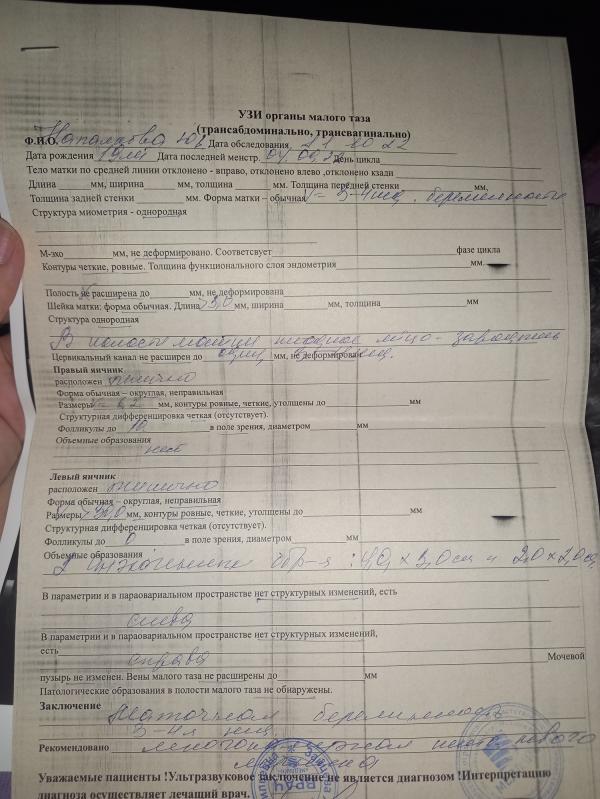 УЗИ органы малого таза
(трансабдоминально, трансвагинально)
Ф.И.О. Дата обследования 21 10 22
Дата рождения 19 лет Дата последней менстр. 04.09.22 День цикла
Тело матки по средней линии отклонено - вправо, отклонено влево ,отклонено кзади
Длина мм, ширина мм, толщина мм. Толщина передней стенки мм,
Толщина задней стенки мм. Форма матки – обычная V- 3-4 нед. беременности
Структура миометрия - однородная
М-эхо мм, не деформировано. Соответсвует фазе цикла
Контуры четкие, ровные. Толщина функционального слоя эндометрия мм.
Полость не расширена до мм, не деформирована
Шейка матки: форма обычная. Длина 3,0 мм, ширина мм, толщина мм
Структура однородная
В полости матки плодное яйцо
Цервикальный канал не расширен до мм, не деформирован
Правый яичник
расположен типично
Форма обычно – округлая, неправильная
Размеры мм, контуры ровные, четкие, утолщены до мм
Структурная дифференцировка четкая (отсутствует).
Фолликулы до 10 в поле зрения, диаметром мм
Объемные образования
нет
Левый яичник
расположен типично
Форма обычно – округлая, неправильная
Размеры мм, контуры ровные, четкие, утолщены до мм
Структурная дифференцировка четкая (отсутствует).
Фолликулы до 0 в поле зрения, диаметром мм
Объемные образования 2 обр-я : 4,0 х 3,0 см и 2,0 х 2,0 см
В параметрии и в параовариальном пространстве нет структурных изменений, есть
слева
В параметрии и в параовариальном пространстве нет структурных изменений,
есть справа Мочевой
пузырь не изменен. Вены малого таза не расширены до мм
Патологические образования в полости малого таза не обнаружены.
Заключение
Маточная беременность
3-4 нед
Рекомендовано левого
яичника
Уважаемые пациенты !Ультразвуковое заключение не является диагнозом !Интерпретацию
диагноза осуществляет лечащий врач.
ВРАЧ